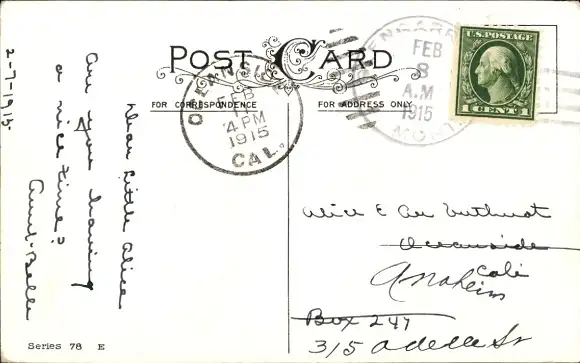 POST CARD
FOR CORRESPONDENCE
FOR ADDRESS ONLY
FEB
8
A.M
1915
MONT
U.S. POSTAGE
1 CENT 1
FEB
4 PM
1915
CAL.
2-7-1915
Dear Little Alice
Are you having
a nice time?
Aunt Belle
Alice E
Oceanside
Cali
Anaheim
Box 247
315 Adelle St
Series 78 E